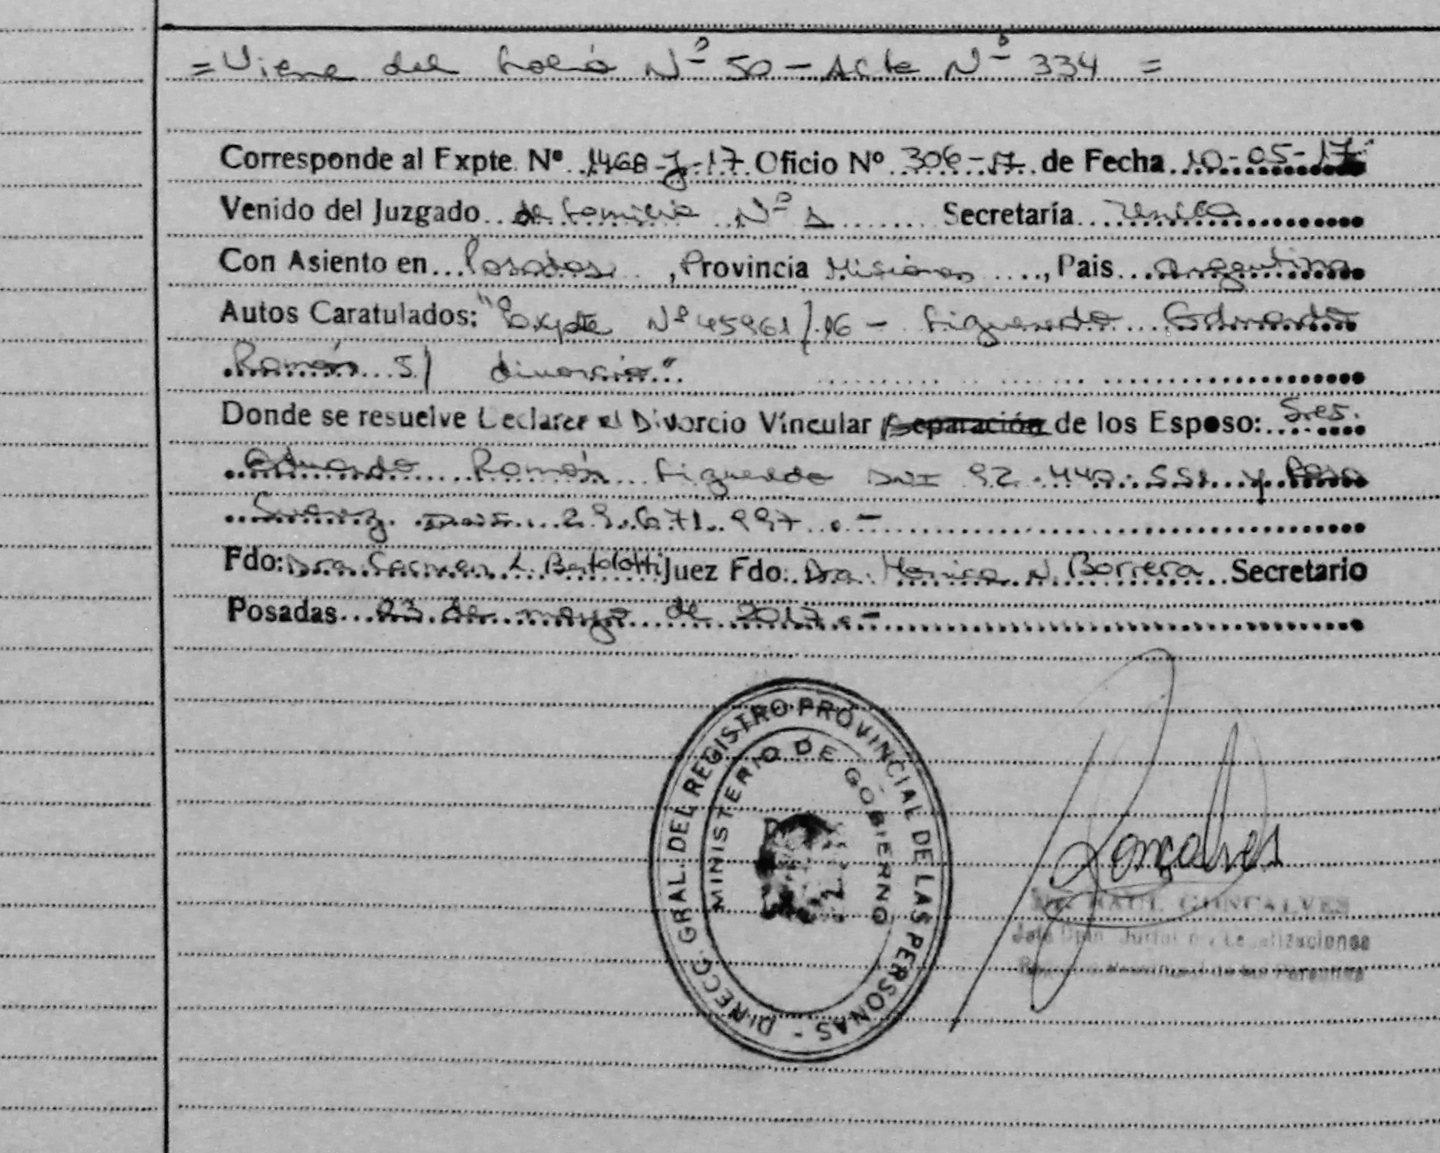 = Viene del folio Nº 50 - Acta Nº 334 =
Corresponde al Expte. Nº 1468-J-17 Oficio Nº 306-17 de Fecha 10-05-17
Venido del Juzgado de Familia Nº 1 Secretaría Unica
Con Asiento en Posadas, Provincia Misiones, Pais Argentina
Autos Caratulados: "Expte Nº 45961/16 - Figueredo Eduardo
Ramón S/ divorcio"
Donde se resuelve Declarar el Divorcio Vincular / Separación de los Esposo: Sres.
Eduardo Ramón Figueredo DNI 92.440.551 y Rosa
Suarez DNI 29.671.997.-
Fdo: Dra. Carmen L. Bertolotti Juez Fdo: Dra. Monica N. Borrera Secretario
Posadas 23 de mayo de 2017.-
DIRECC. GRAL. DEL REGISTRO PROVINCIAL DE LAS PERSONAS -
MINISTERIO DE GOBIERNO
Gonçalves
RAUL GONCALVES
Legalizaciones
Provincial de las Personas